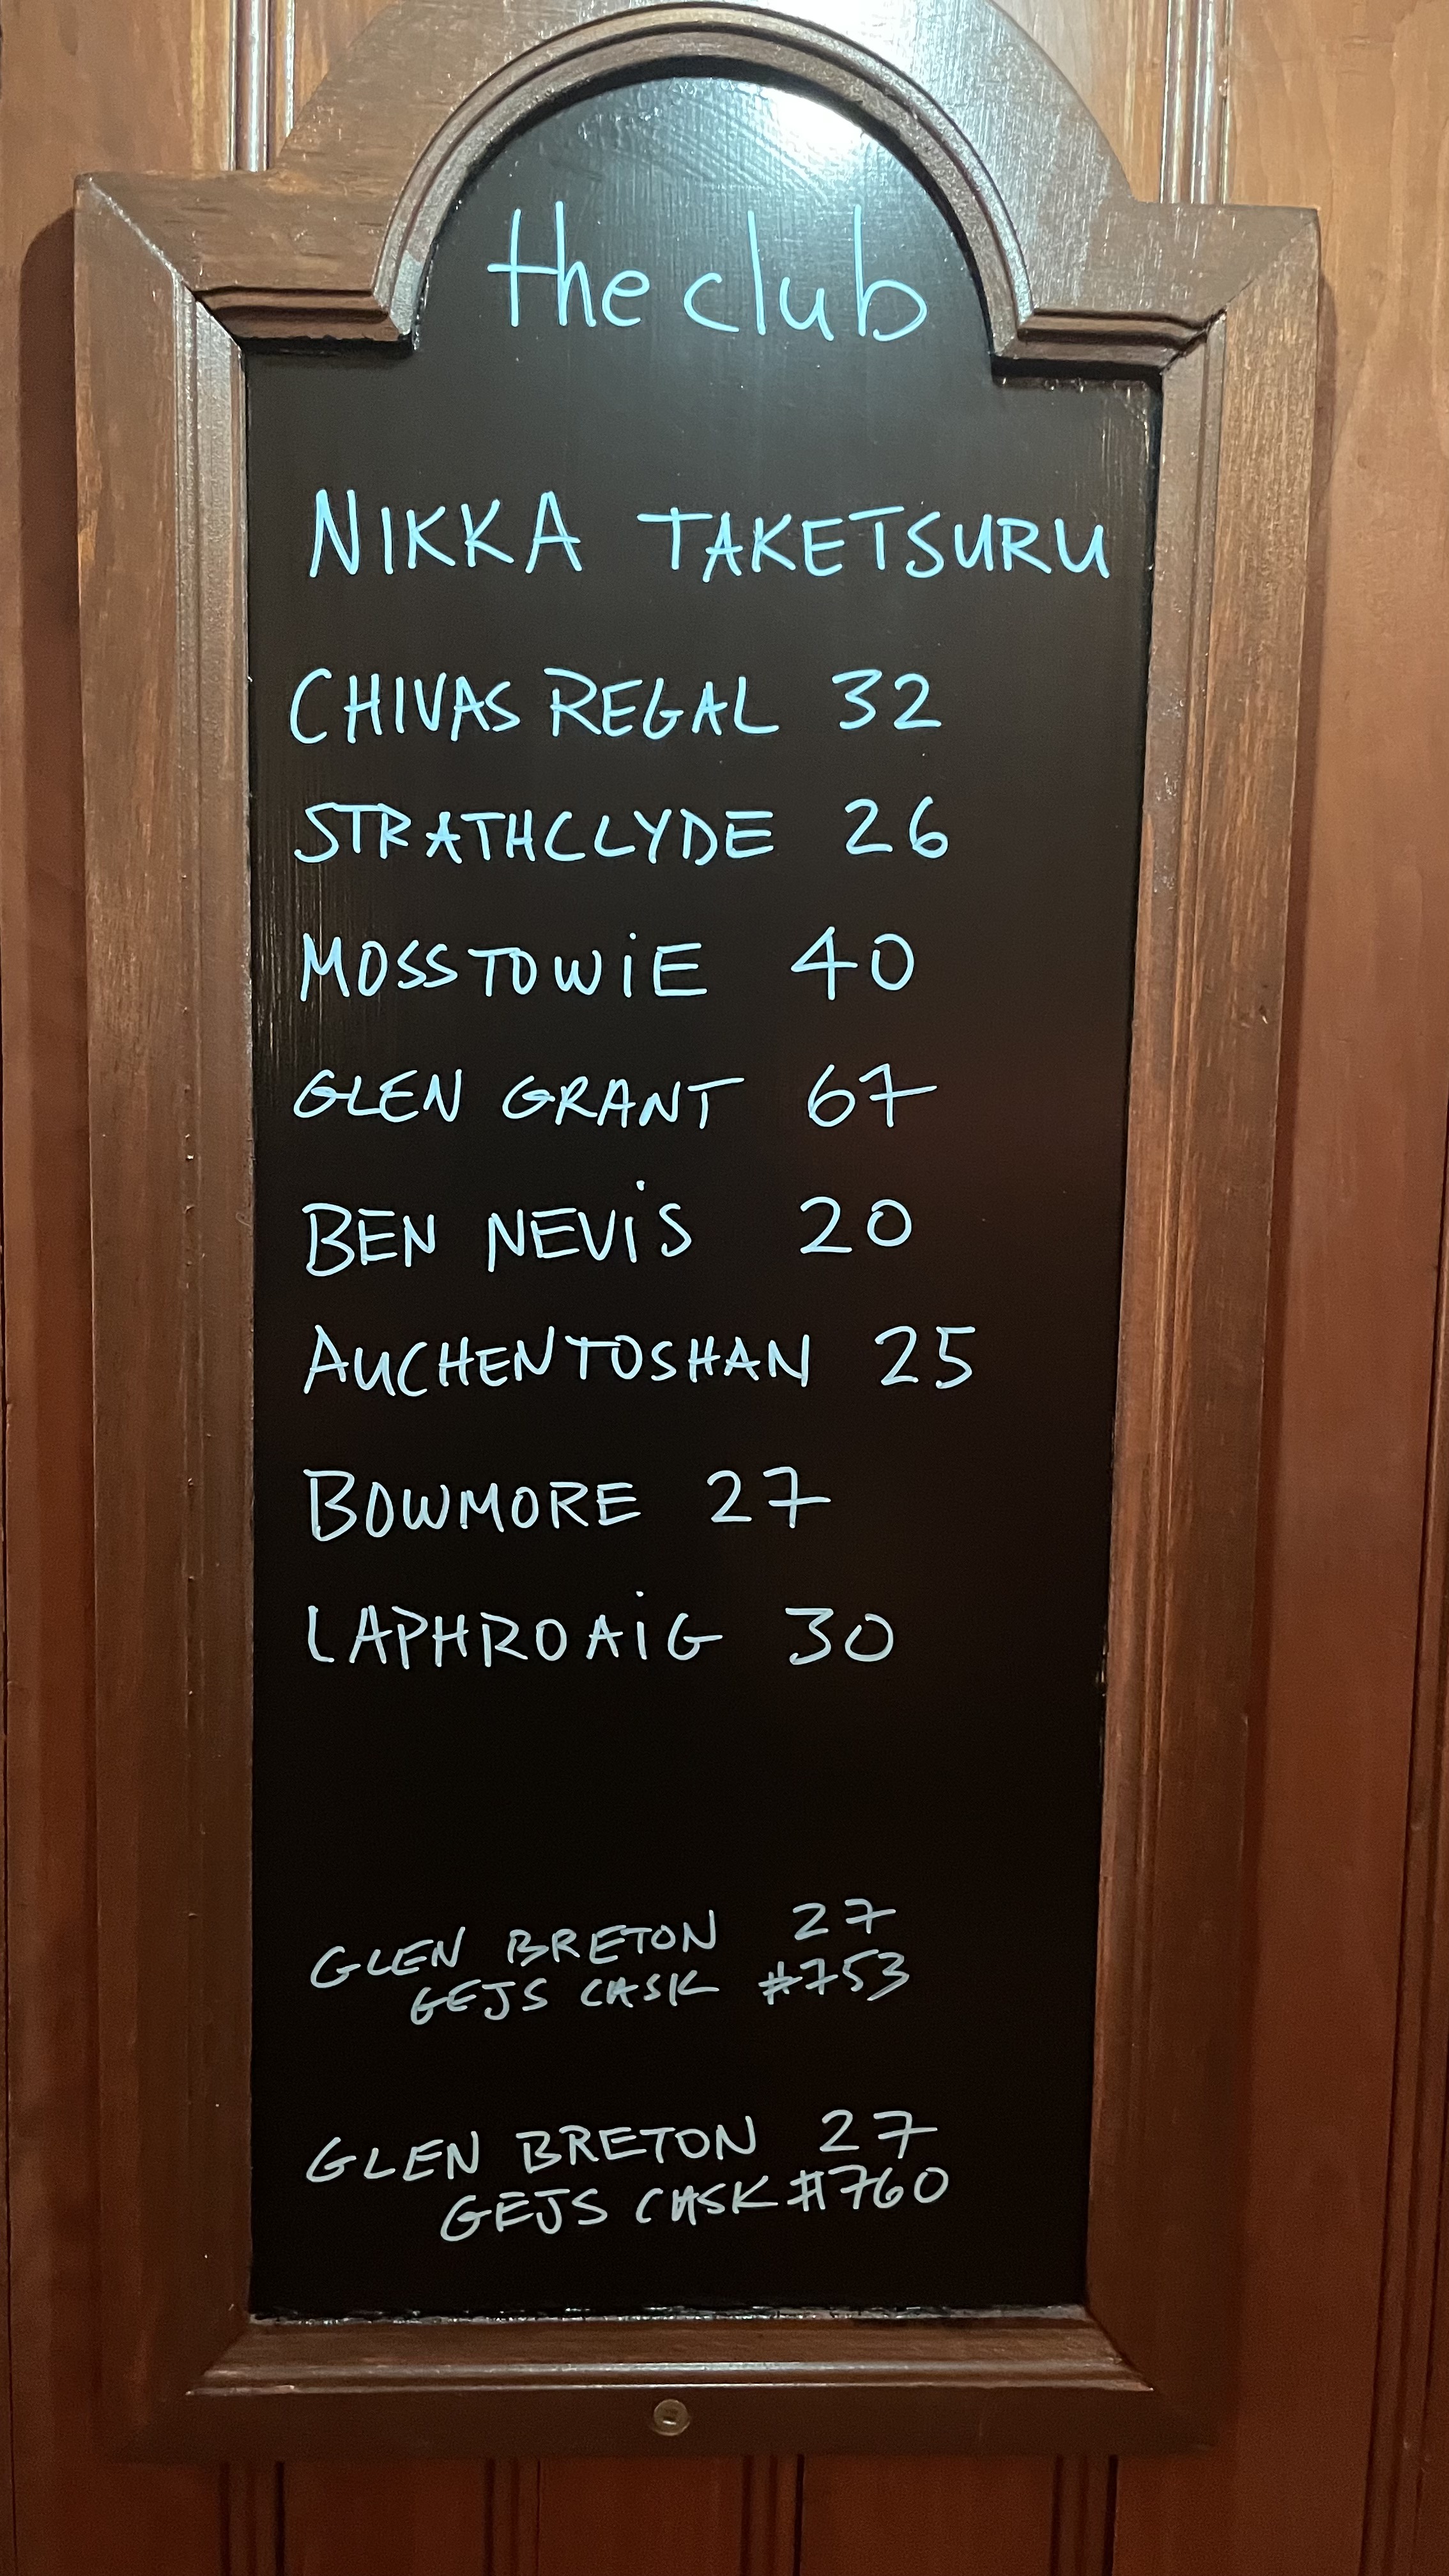 the club
NIKKA TAKETSURU
CHIVAS REGAL 32
STRATHCLYDE 26
MOSSTOWiE 40
GLEN GRANT 67
BEN NEViS 20
AUCHENTOSHAN 25
BOWMORE 27
LAPHROAiG 30
GLEN BRETON 27
GEJS CASK #753
GLEN BRETON 27
GEJS CASK #760